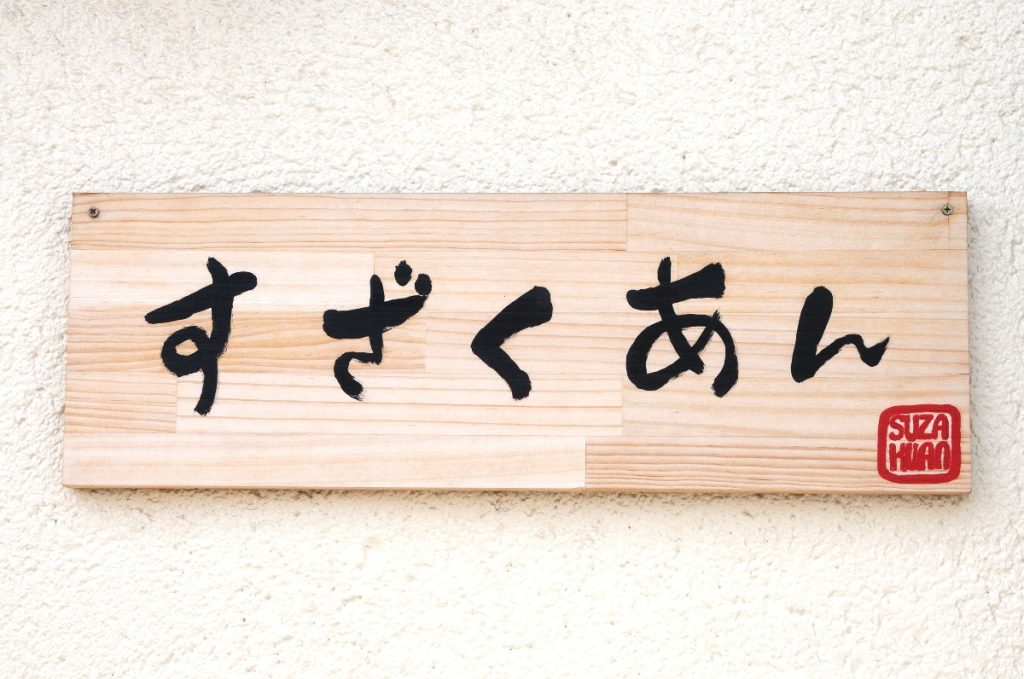 すざくあん
SUZA
KUAN